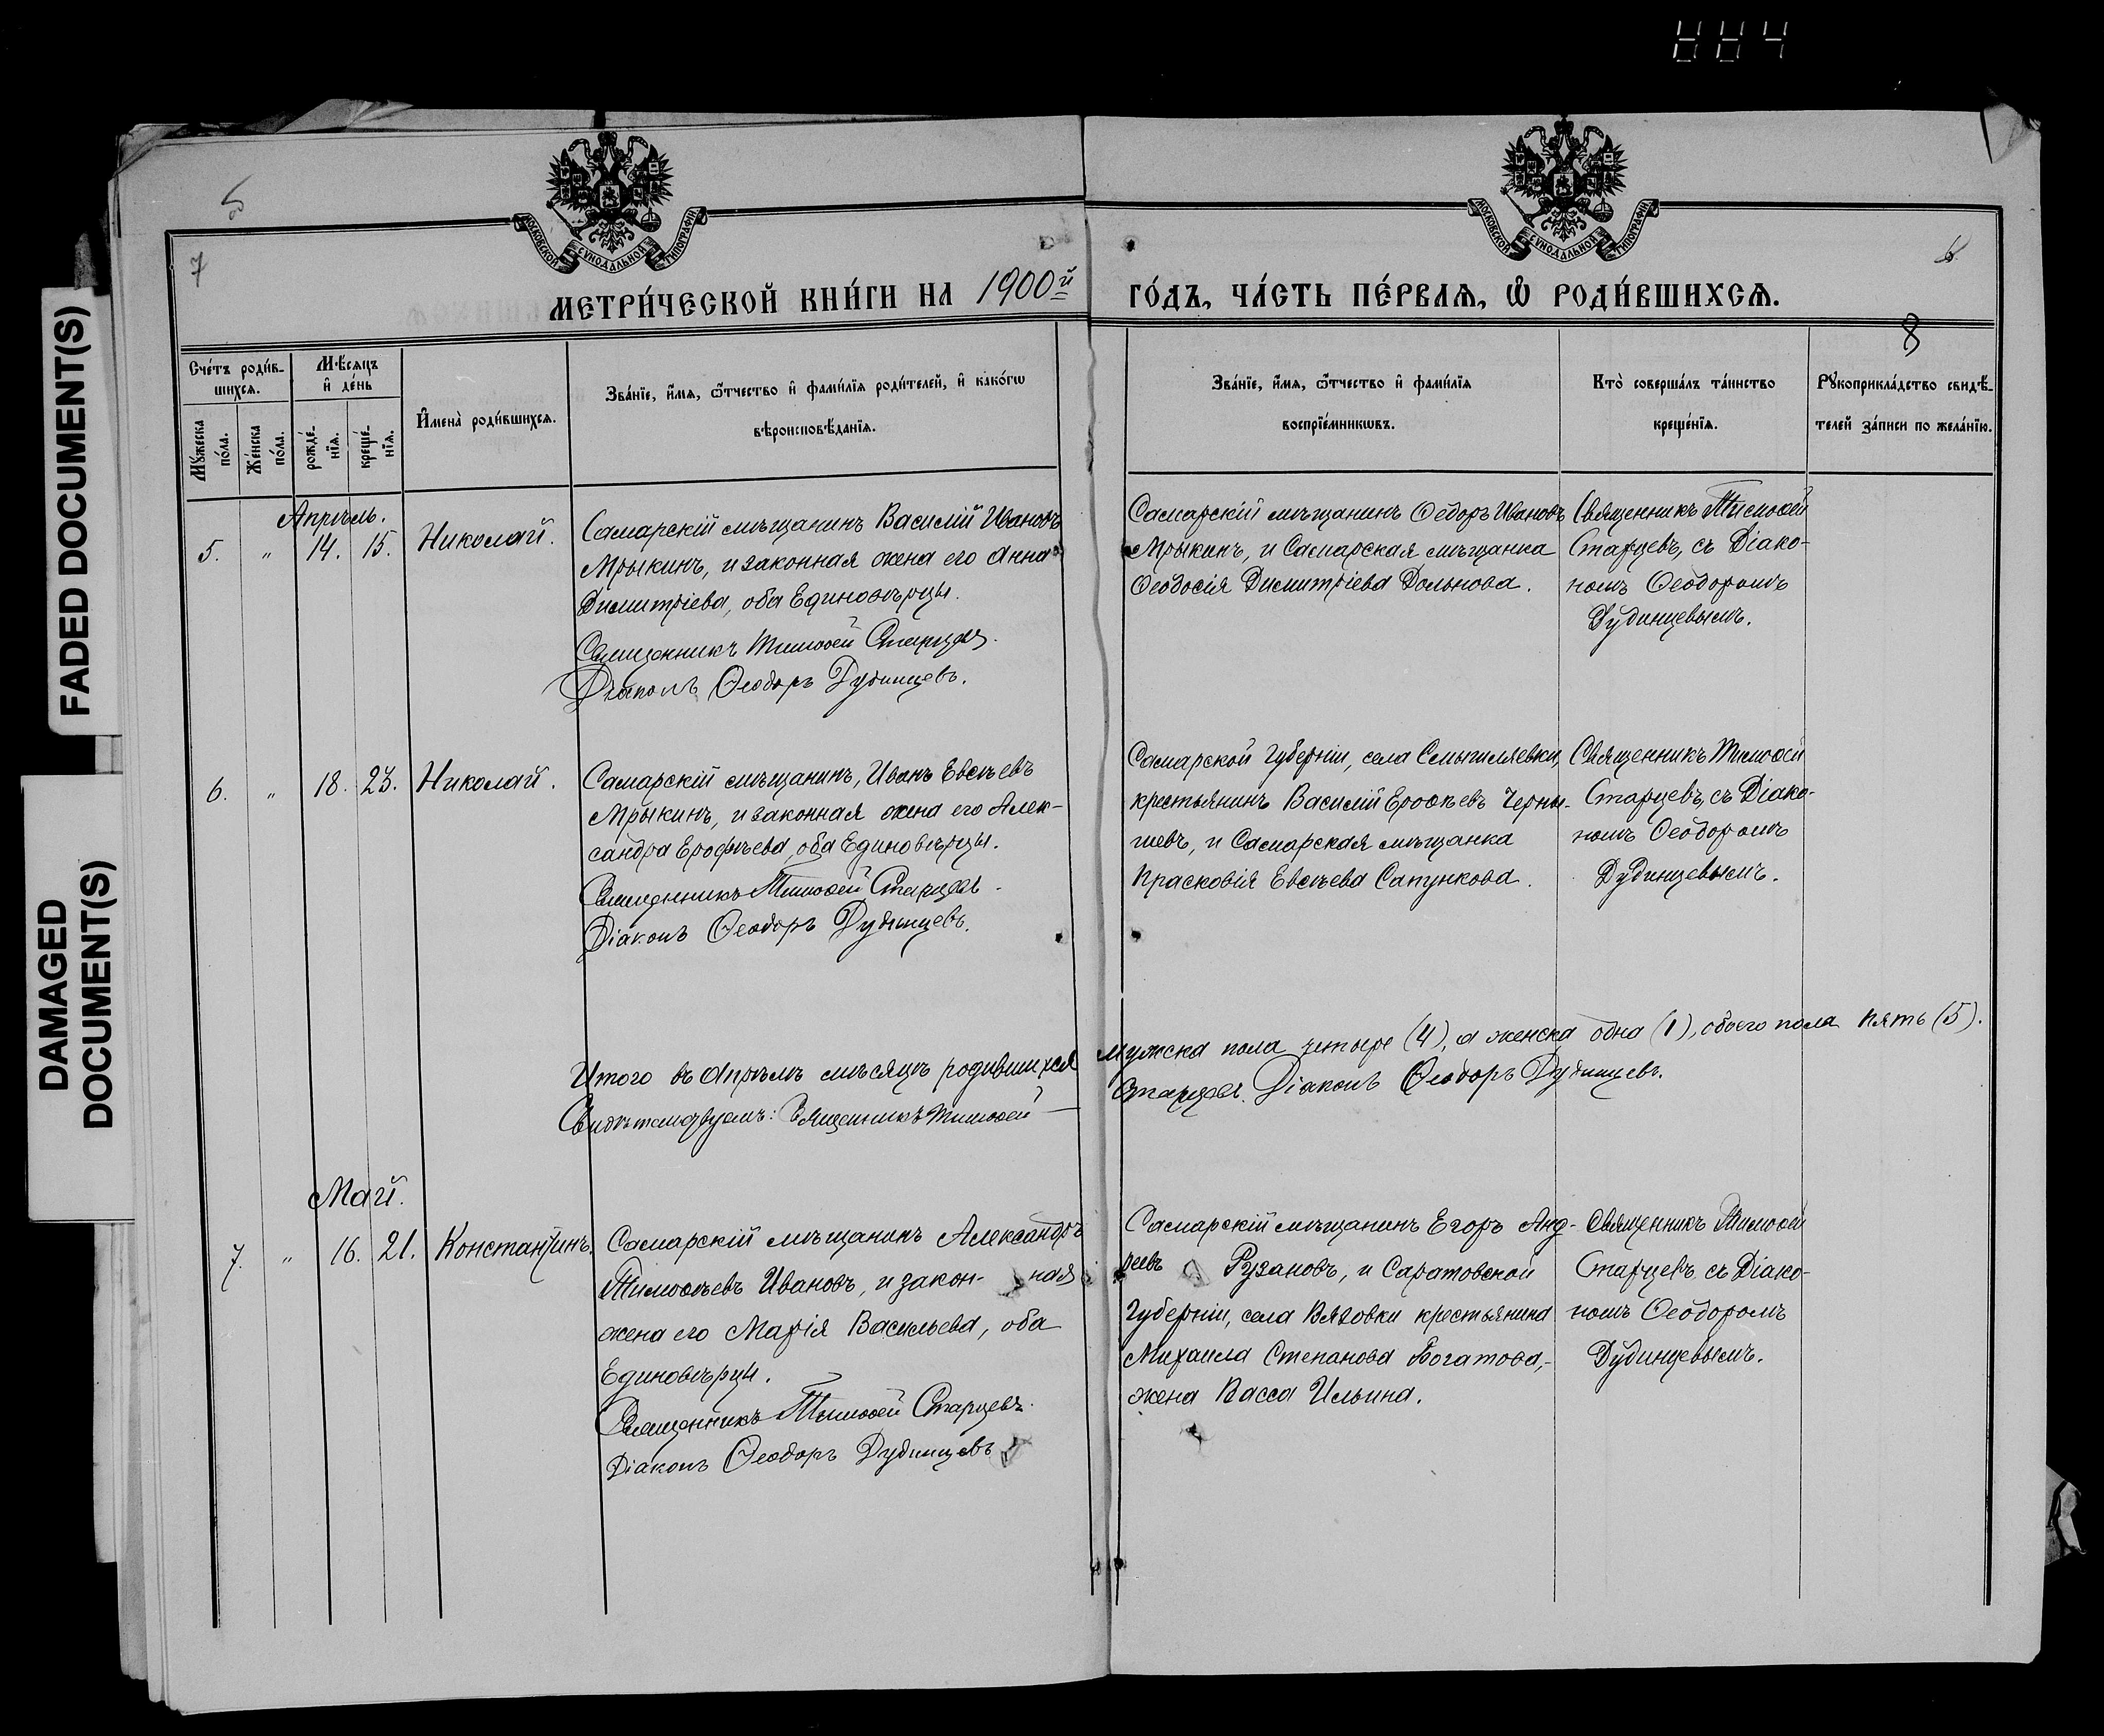 444
FADED DOCUMENT(S)
DAMAGED
DOCUMENT(S)
5
7
МОСКОВСКОЙ СУНОДАЛЬНОЙ ТИПОГРАФІИ
МОСКОВСКОЙ СУНОДАЛЬНОЙ ТИПОГРАФІИ
МЕТРИ́ЧЕСКОЙ КНИ́ГИ НА 1900й
ГО́ДЪ, ЧА́СТЬ ПЕ́РВАѦ, Ѡ҆ РОДИ́ВШИХСѦ.
8
Сче́тъ роди́в-
шихсѧ.
Мꙋ́жеска
по́ла.
Же́нска
по́ла.
Мѣ́сѧцъ
и҆ де́нь
рожде́-
нїѧ.
креще́-
нїѧ.
И҆мена̀ роди́вшихсѧ.
Зва́нїе, и҆́мѧ, ѻ҆́тчество и҆ фами́лїѧ роди́телей, и҆ како́гѡ
вѣроисповѣ́данїѧ.
Зва́нїе, и҆́мѧ, ѻ҆́тчество и҆ фами́лїѧ
воспрїе́мникѡвъ.
Кто̀ соверша́лъ та́инство
креще́нїѧ.
Рꙋкоприкла́дство свидѣ́-
телей за́писи по жела́нїю.
Апрѣль.
5. „ 14. 15. Николай.
Самарскій мѣщанинъ Василій Ивановъ
Мрыкинъ, и законная жена его Анна
Димитріева, оба Единовѣрцы.
Священникъ Тимоѳей Старцевъ.
Діаконъ Ѳеодоръ Дудинцевъ.
Самарскій мѣщанинъ Ѳедоръ Ивановъ
Мрыкинъ, и Самарская мѣщанка
Ѳеодосія Димитріева Дольнова.
Священникъ Тимоѳей
Старцевъ, съ Діако-
номъ Ѳеодоромъ
Дудинцевымъ.
6. „ 18. 23. Николай.
Самарскій мѣщанинъ, Иванъ Евсѣевъ
Мрыкинъ, и законная жена его Алек-
сандра Ерофѣева, оба Единовѣрцы.
Священникъ Тимоѳей Старцевъ.
Діаконъ Ѳеодоръ Дудинцевъ.
Самарской губерніи, села Смышляевки,
крестьянинъ Василій Ероѳѣевъ Черны-
шевъ, и Самарская мѣщанка
Прасковія Евсѣева Сапункова.
Священникъ Тимоѳей
Старцевъ, съ Діако-
номъ Ѳеодоромъ
Дудинцевымъ.
Итого въ Апрѣлѣ мѣсяцѣ родившихся мужска пола четыре (4), а женска одна (1), обоего пола пять (5).
Свидѣтельствуемъ: Священникъ Тимоѳей Старцевъ. Діаконъ Ѳеодоръ Дудинцевъ.
Май.
7. „ 16. 21. Константинъ.
Самарскій мѣщанинъ Александръ
Тимоѳѣевъ Ивановъ, и закон- ная
жена его Марія Васильева, оба
Единовѣрцы.
Священникъ Тимоѳей Старцевъ.
Діаконъ Ѳеодоръ Дудинцевъ
Самарскій мѣщанинъ Егоръ Анд-
реевъ Рузановъ, и Саратовской
губерніи, села Вязовки крестьянина
Михаила Степанова Богатова,-
жена Васса Ильина.
Священникъ Тимоѳей
Старцевъ, съ Діако-
номъ Ѳеодоромъ
Дудинцевымъ.